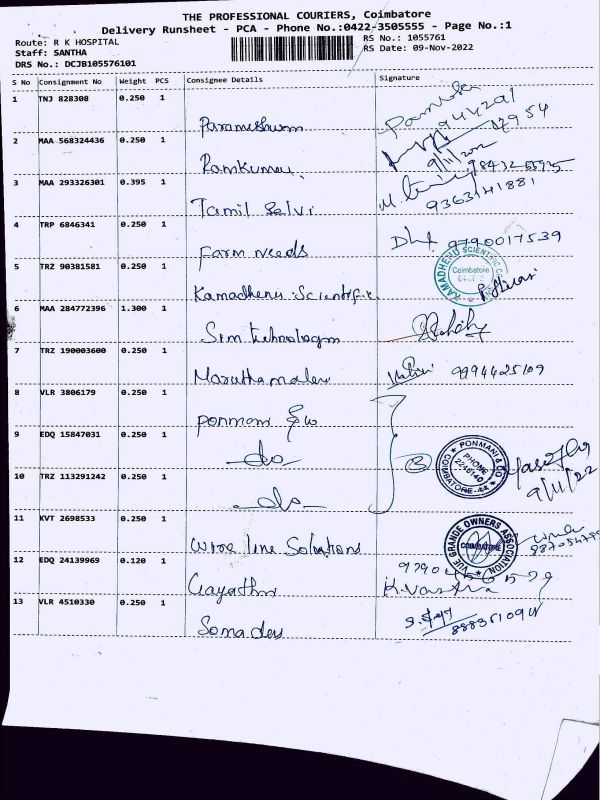 THE PROFESSIONAL COURIERS, Coimbatore
Delivery Runsheet - PCA - Phone No.:0422-3505555 - Page No.:1
Route: R K HOSPITAL
RS No.: 1055761
Staff: SANTHA
RS Date: 09-Nov-2022
DRS No.: DCJB105576101
S No Consignment No Weight PCS Consignee Details Signature
1 TNJ 828308 0.250 1
Parameshwam
2 MAA 568324436 0.250 1
9/11/2022
Ramkumar
3 MAA 293326301 0.395 1
9363141881
Tamil Selvi
4 TRP 6846341 0.250 1
9790017539
Farm needs
5 TRZ 90381581 0.250 1
KAMADHENU SCIENTIFIC
Coimbatore
Kamadhenu Scientific
6 MAA 284772396 1.300 1
Srm technologm
7 TRZ 190003600 0.250 1
Maruthamalai
9994425109
8 VLR 3806179 0.250 1
Ponmani & co
9 EDQ 15847031 0.250 1
-do-
3
PONMANI & CO
PHONE
2246140
COIMBATORE
10 TRZ 113291242 0.250 1
9/11/22
-do-
11 KVT 2698533 0.250 1
VUE GRANDE OWNERS ASSOCIATION
COIMBATORE
Wire line Solutions
12 EDQ 24139969 0.120 1
Gayathri
13 VLR 4510330 0.250 1
Soma dev